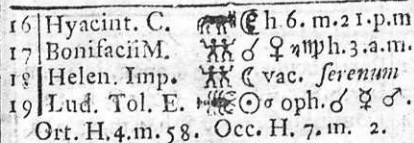 16 Hyacint. C. ☾ h. 6. m. 21. p. m
17 Bonifacii M. ☌ ♀ ♍ h. 3. a. m.
18 Helen. Imp. ☾ vac. serenum
19 Lud. Tol. E. ☉ oph. ☌ ☿ ♂.
Ort. H. 4. m. 58. Occ. H. 7. m. 2.